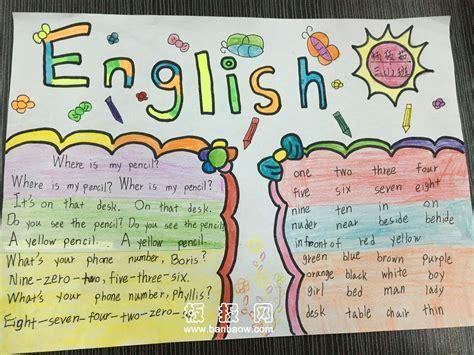 English
Where is my pencil?
Where is my pencil? Wher is my pencil?
It's on that desk. On that desk.
Do you see the pencil? Do you see the pencil?
A yellow pencil. A yellow pencil.
What's your phone number, Boris?
Nine-zero-two, five-three-six.
What's your phone number, Phyllis?
Eight-seven-four-two-zero-
one two three four
five six seven eight
nine ten in on
nuder near beside behide
infront of red yellow
green blue brown purple
orange black white boy
girl bed man lady
desk table chair thin
板报网
www.banbaow.com